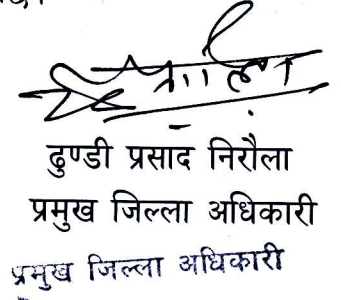 ढुण्डी प्रसाद निरौला
प्रमुख जिल्ला अधिकारी
प्रमुख जिल्ला अधिकारी